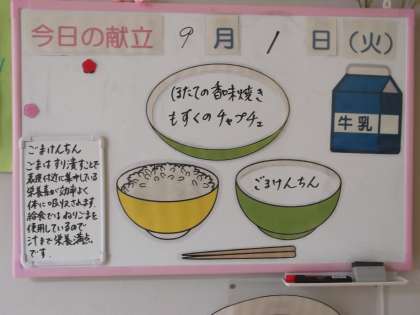 今日の献立 9月1日(火)
ほたての香味焼き
もずくのチャプチェ
牛乳
ごまけんちん
ごまけんちん
ごまはすり潰すことで
表皮付近に集中している
栄養素が効率よく
体に吸収されます。
給食ではねりごまを
使用しているので
汁まで栄養満点
です。